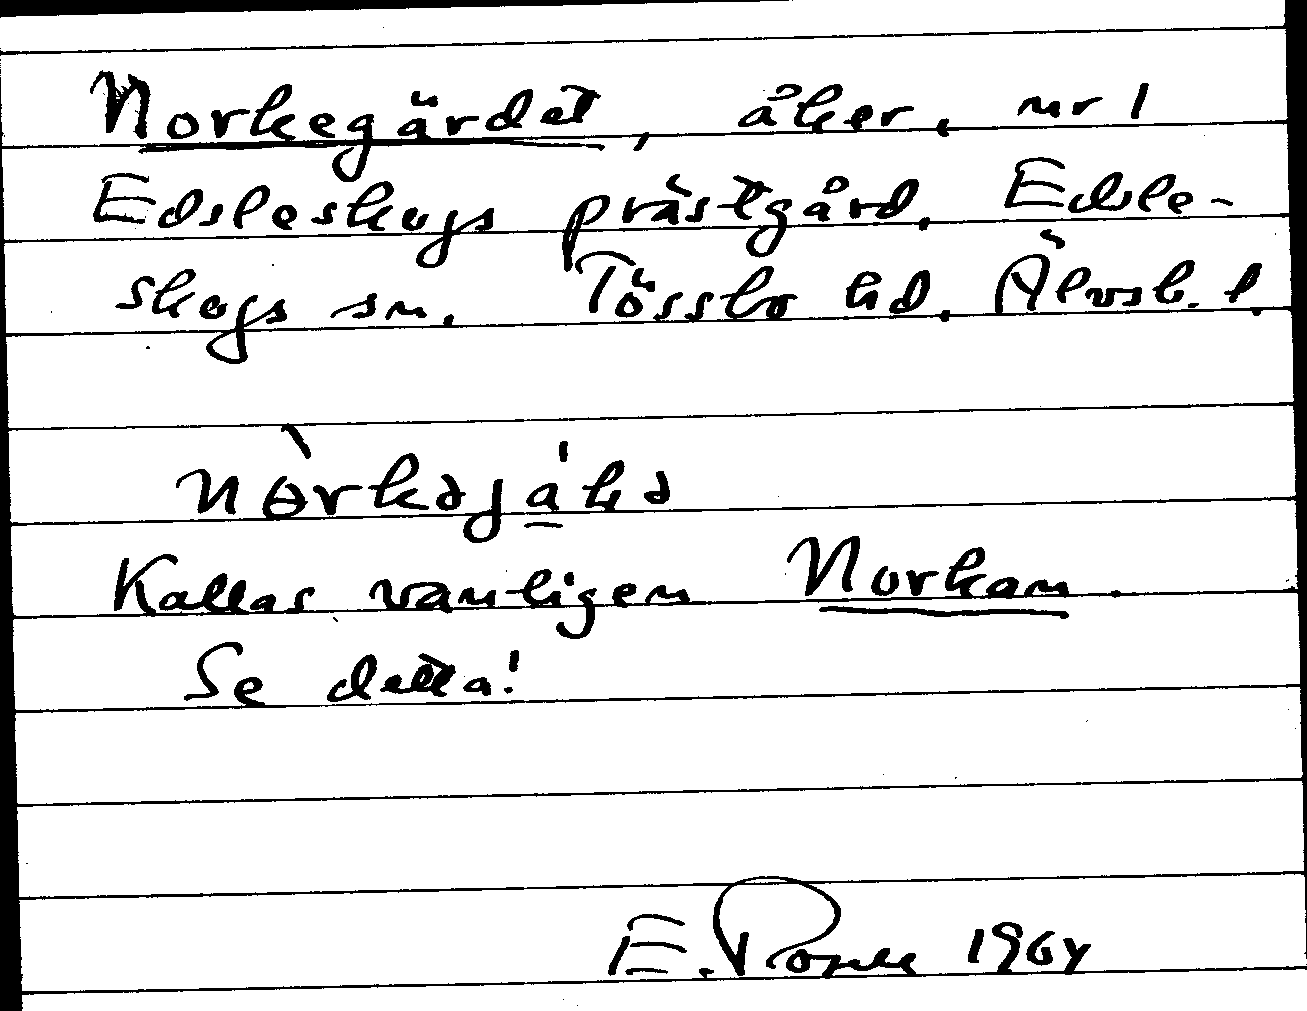 Norkegärdet, åker, nr 1
Edsleskogs prästgård, Edsle-
skogs sn. Tössbo hd. Älvsb. l.
Kallas vanligen Norkan.
Se detta!
E. 1964